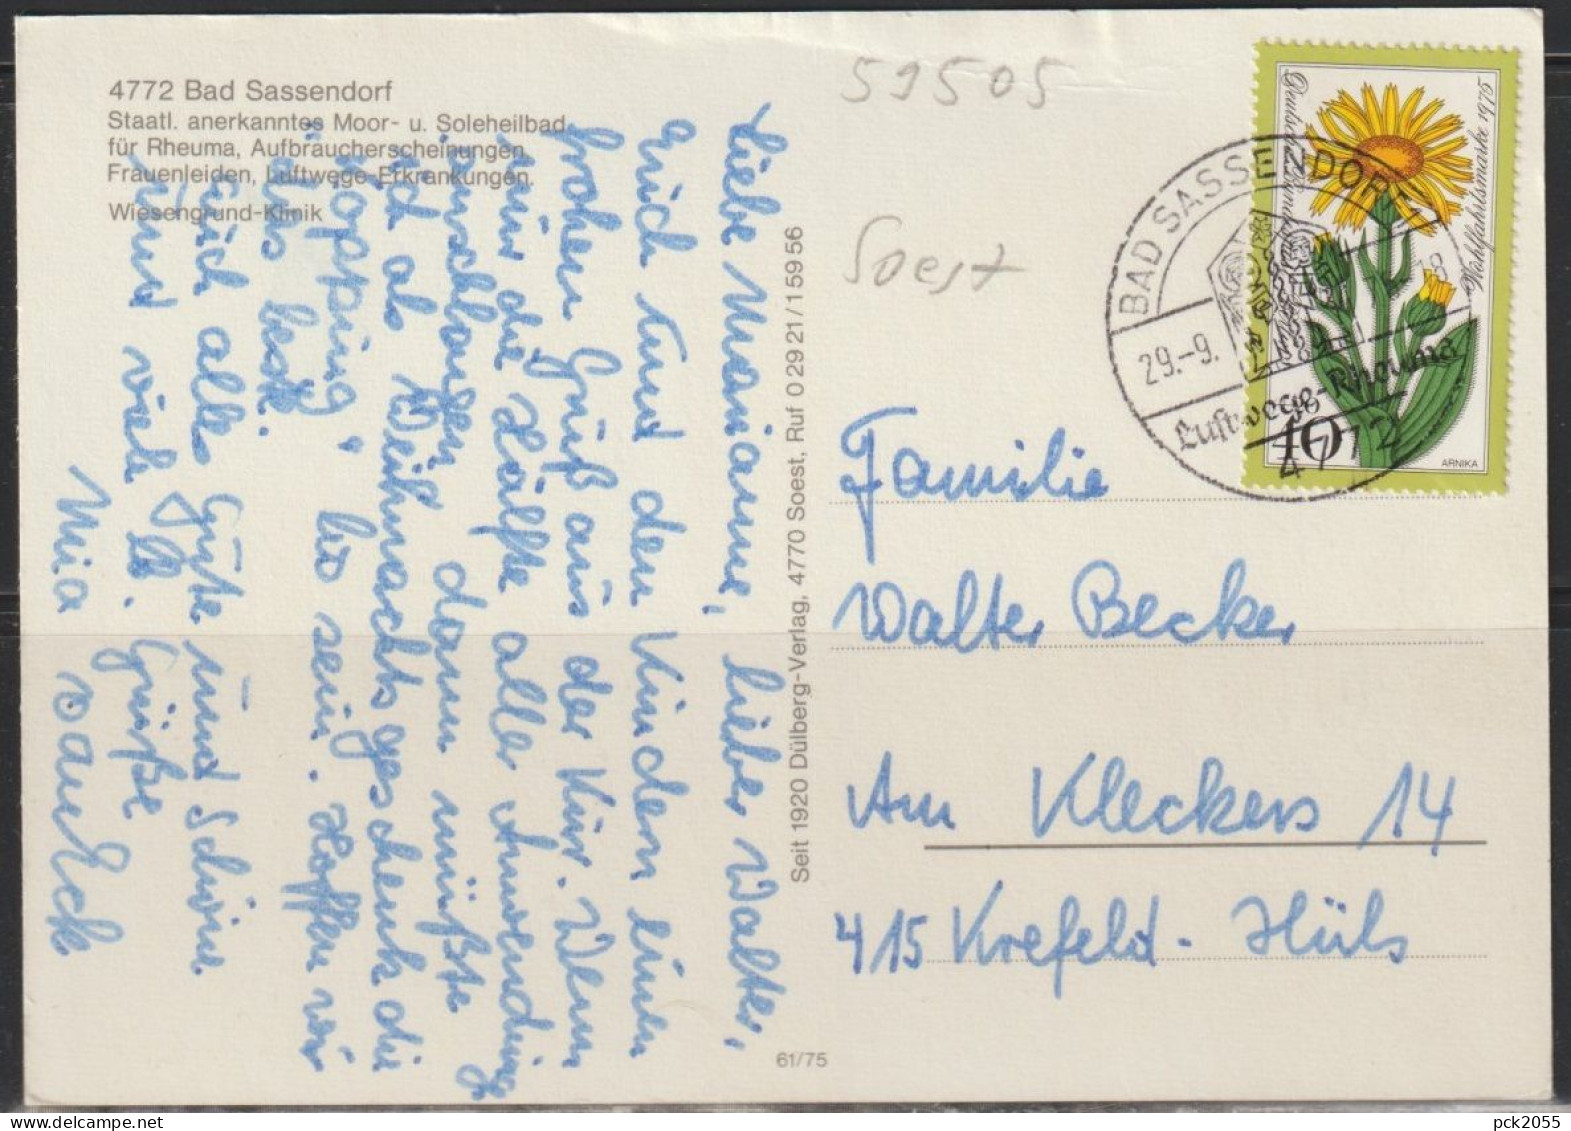 4772 Bad Sassendorf
Staatl. anerkanntes Moor- u. Soleheilbad
für Rheuma, Aufbraucherscheinungen,
Frauenleiden, Luftwege-Erkrankungen.
Wiesengrund-Klinik
Liebe Marianne, lieber Walter,
Euch und den Kindern einen
frohen Gruß aus der Kur. Wenn
nur die Hälfte aller Anwendungen
anschlagen, dann müßte
ich als Weihnachtsgeschenk die
"topping" so sein. Hoffen wir
das beste.
Euch alles Gute und Schöne
und viele lb. Grüße
Mia van Eck
Seit 1920 Dülberg-Verlag, 4770 Soest, Ruf 0 29 21 / 1 59 56
61/75
59505
Soest
Deutsche Bundespost
Wohlfahrtsmarke 1975
ARNIKA
BAD SASSENDORF 1
29.-9.
-8
Luftwege-Rheuma
4772
Familie
Walter Becker
Am Kleckers 14
415 Krefeld-Hüls
pck2055
delcampe.net